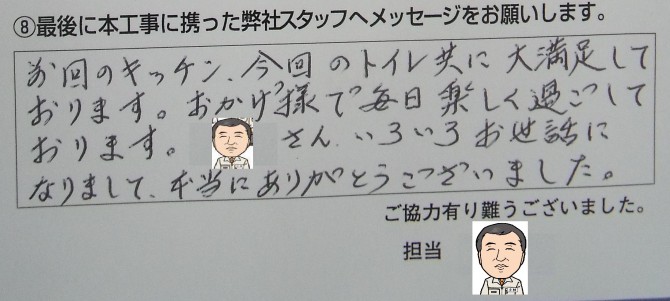 ⑧最後に本工事に携った弊社スタッフへメッセージをお願いします。
前回のキッチン、今回のトイレ共に大満足して
おります。おかげ様で毎日楽しく過ごして
おります。さん、いろいろお世話に
なりまして、本当にありがとうございました。
ご協力有り難うございました。
担当